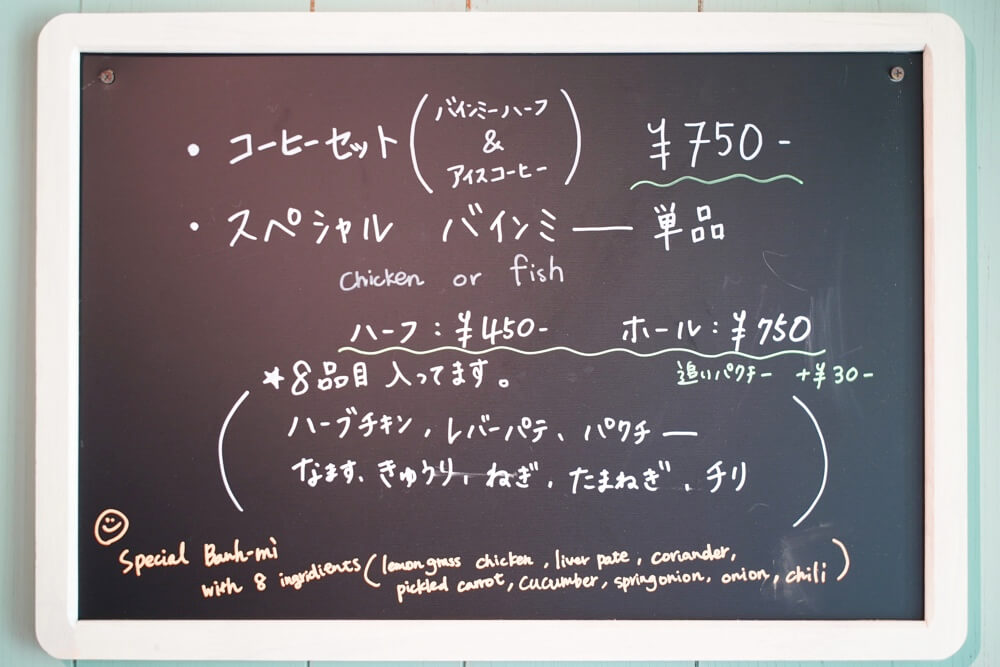 ・コーヒーセット(バインミーハーフ & アイスコーヒー) ¥750-
・スペシャル バインミー 単品
chicken or fish
ハーフ：¥450- ホール：¥750
★8品目 入ってます。 追いパクチー +¥30-
(ハーブチキン, レバーパテ、パクチー
なます、きゅうり、ねぎ, たまねぎ, チリ)
Special Banh-mi
with 8 ingridients (lemongrass chicken, liver pate, coriander,
pickled carrot, cucumber, springonion, onion, chili)